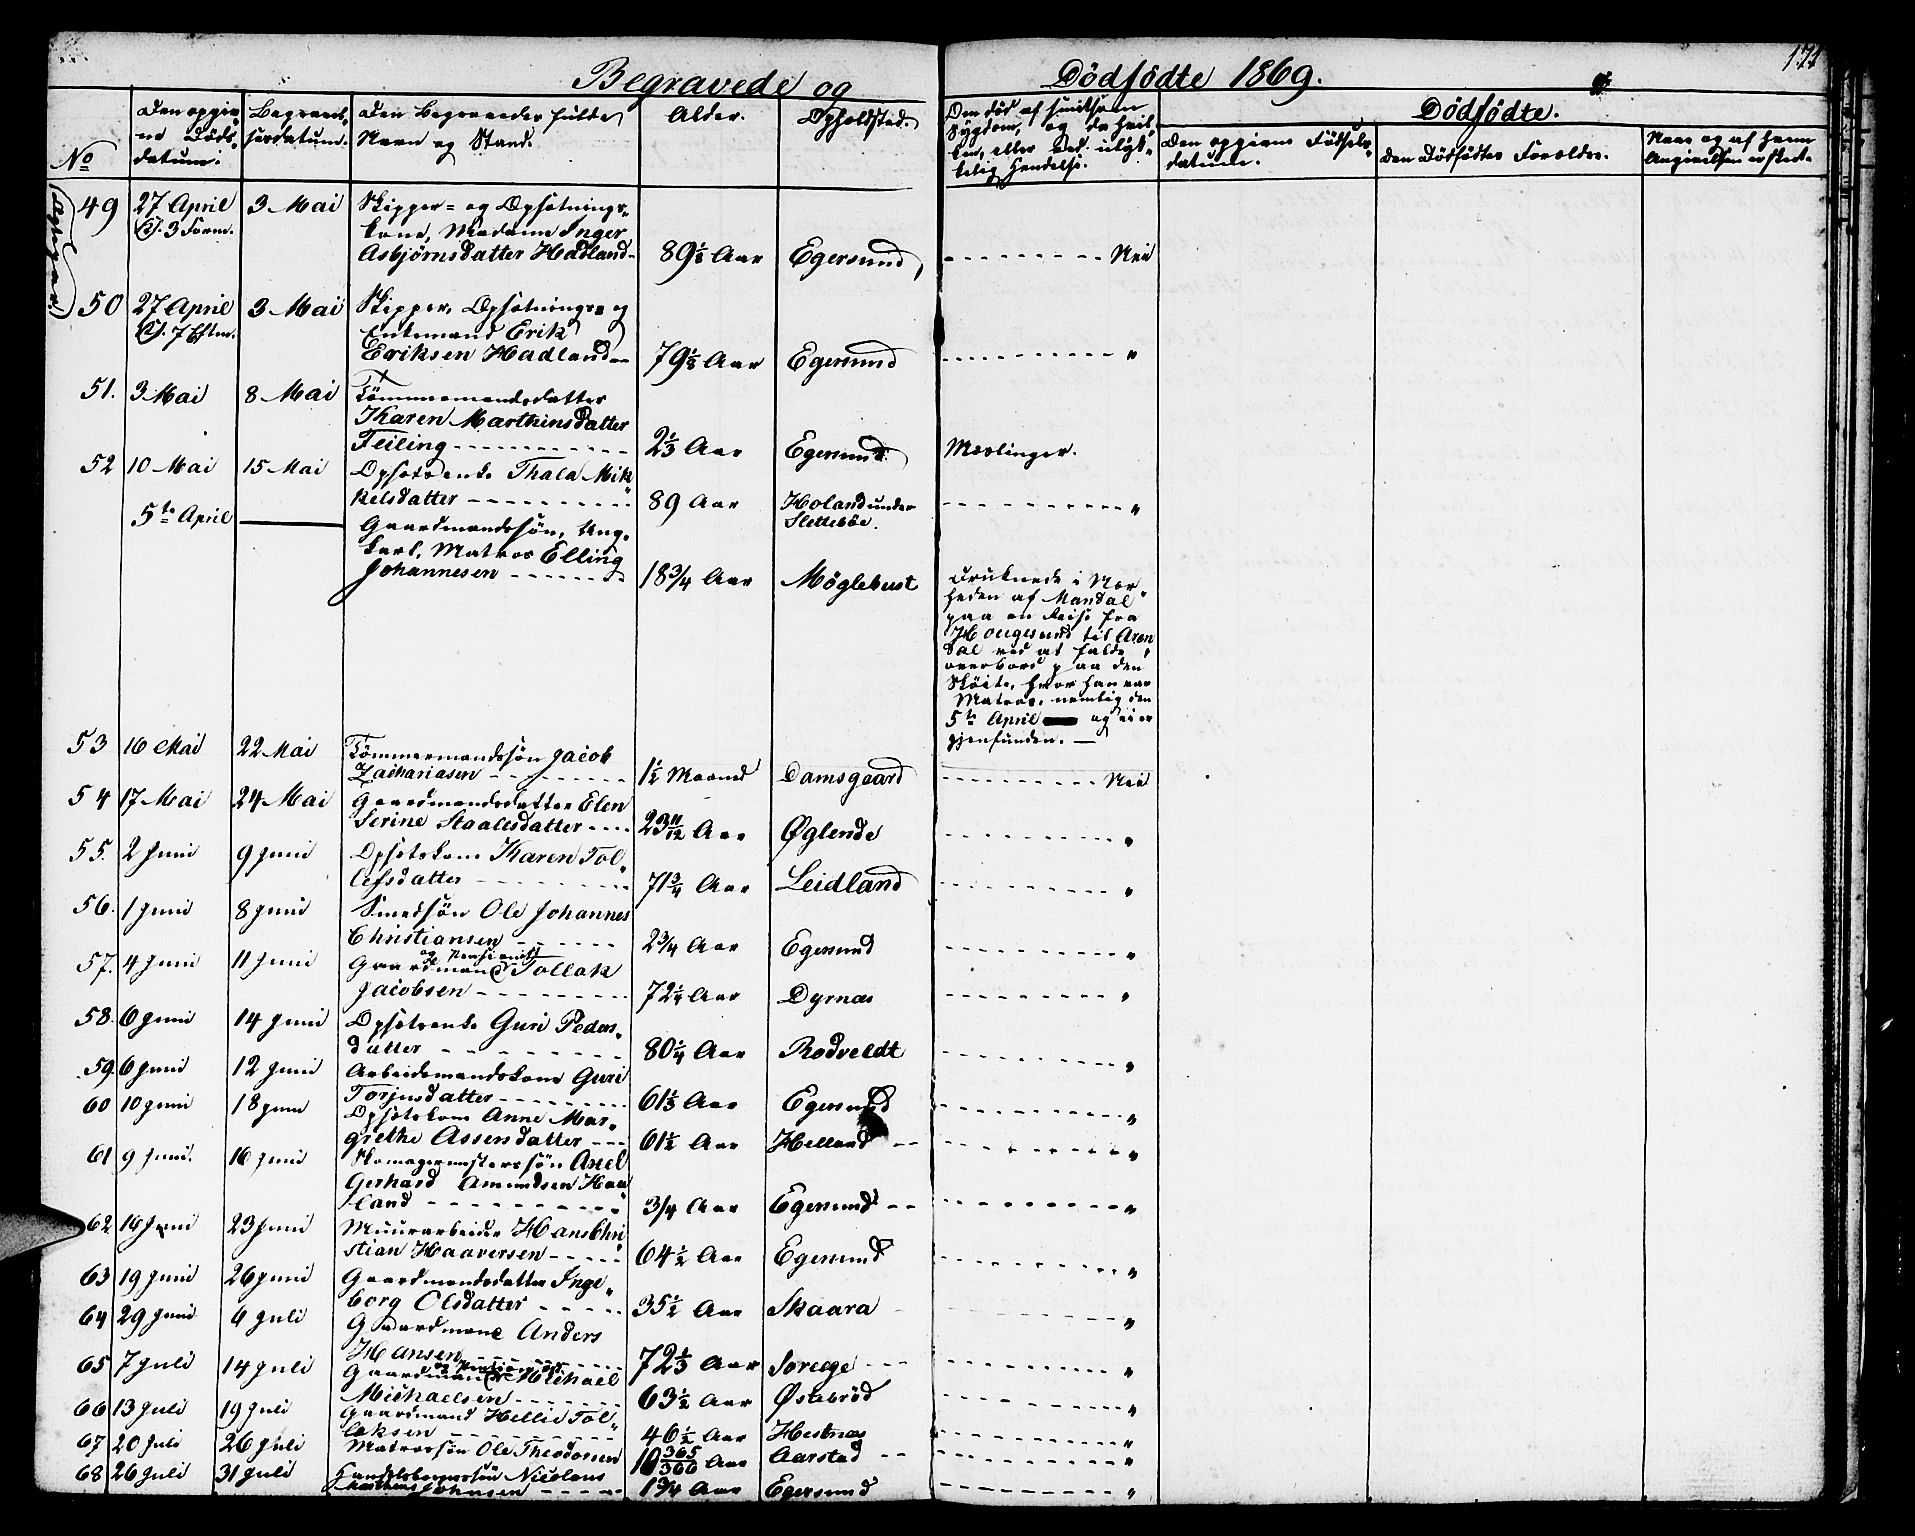 Begravede og Dödfödte 1869.
171
No
Den opgivne Döds-datum.
Begravelsesdatum.
Den Begravedes fulde Navn og Stand.
Alder.
Opholdsted.
Om död af smitsom Sygdom, og da hvilken, eller ved ulykkelig Hendelse.
Dödfödte.
Den opgivne Födsels-datum.
Den Dödfödtes Forældre.
Naar og af hvem Angivelsen er skeet.
49 27 April 3 Mai Skipper- og Opsötnings-
Kl. 3 Form. kone, Madame Inger
Asbjörnsdatter Hadland- 89½ Aar Egersund, - - - Nei
50 27 April 3 Mai Skipper, Opsötnings- og
Kl. 7 Eftm. Enkemand Erik
Eriksen Hadland- 79½ Aar Egersund - - - "
51. 3 Mai 8 Mai Tömmermandsdatter
Karen Marthinsdatter
Feiling - - - 2⅓ Aar Egersund. Mæslinger.
52 10 Mai 15 Mai Opsötsenke Thala Mik-
kelsdatter - - - 89 Aar Holand under
Sletteböe. - - - "
5te April — Gaardmandssön, Ung-
karl, Matros Elling
Johannesen - - - 18¾ Aar Möglebust Druknede i Nær-
heden af Mandal
paa en Reise fra
Hougesund til Aren
dal ved at falde
overbord paa den
Sköite, hvor han var
Matros, nemlig den
5te April og ei er
gjenfunden. —
53 16 Mai 22 Mai Tömmermandssön Jacob
Zachariasen - - - 1½ Maaned Damsgaard - - - Nei
54 17 Mai 24 Mai Gaardmandsdatter Elen
Serine Staalesdatter - - - 23 11/12 Aar Øglende - - - "
55. 2 Juni 9 Juni Opsötskone Karen Tol-
lefsdatter - - - 71¾ Aar Leidland - - - "
56. 1 Juni 8 Juni Smedsön Ole Johannes
Christiansen - - - 2¾ Aar Egersund - - - "
57. 4 Juni 11 Juni Gaardmand og Pensionist Tollak
Jacobsen - - - 72¼ Aar Dyrnæs - - - "
58. 6 Juni 14 Juni Opsötsenke Guri Peders-
datter - - - 80¼ Aar Rodveldt - - - "
59. 6 Juni 12 Juni Arbeidsmandskone Guri
Torjusdatter - - - 61⅓ Aar Egersund - - - "
60 10 Juni 18 Juni Opsötskone Anne Mar-
grethe Assersdatter - - - 61½ Aar Helland - - - "
61 9 Juni. 16 Juni Skomagermesterssön Axel
Gerhard Amundsen Haa-
land - - - 3/4 Aar Egersund - - - "
62 16 Juni 23 Juni Muurarbeider Hans Chri
stian Haaversen - - - 64½ Aar Egersund - - - "
63 19 Juni 26 Juni Gaardmandsdatter Inge-
borg Olsdatter - - - 35½ Aar Skaara - - - "
64 29 Juni 6 Juli Gaardmand Anders
Hansen - - - 72⅓ Aar - - - "
65 7 Juli 14 Juli Gaardmand og Pensionist Michael
Michaelsen - - - 63½ Aar Østebröd - - - "
66 13 Juli 19 Juli Gaardmand Hellie Tol-
laksen - - - 46½ Aar Hestnæs - - - "
67 20 Juli 26 Juli Matrossön Ole Theodorsen 10 365/366 Aar Aarstad - - - "
68 26 Juli 31 Juli Handelsborgerssön Nicolaus
Johnsen - - - 1¾ Aar Egersund - - - "